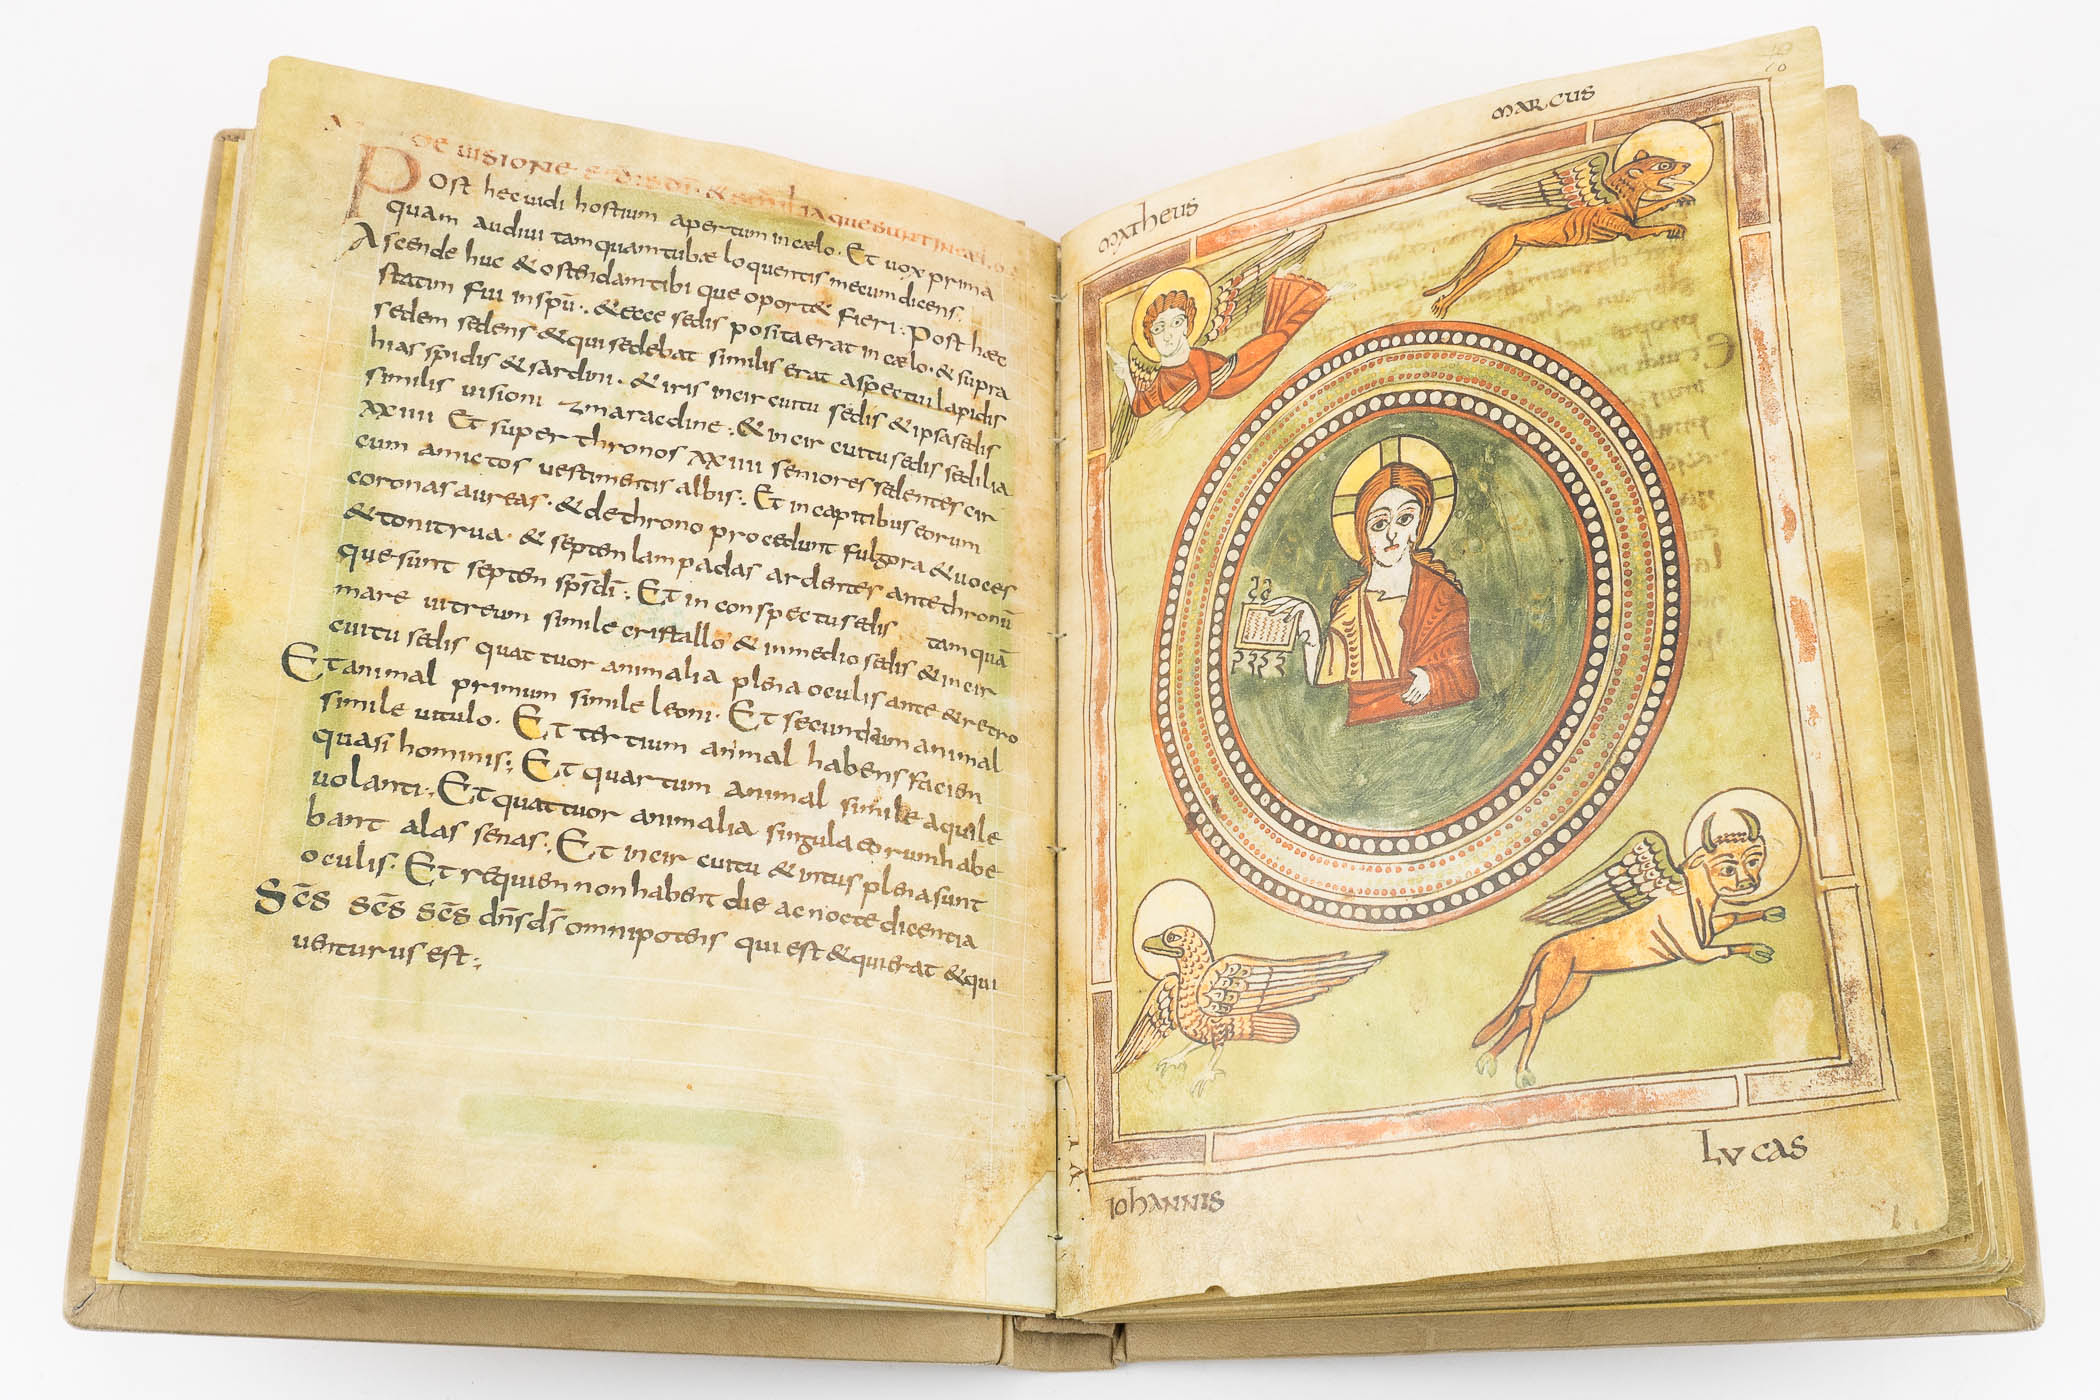 DE VISIONE SEDIS DNI & SEDILIA QUE SUNT IN CAELO
Post hec uidi hostium apertum in cælo. Et uox prima
quam audiui tamquam tubæ loquentis mecum dicens.
Ascende huc & ostendam tibi que oport& fieri. Post hæc
statim fui in spū:. & ecce sedis posita erat in cælo. & supra
sedem sedens & qui sedebat similis erat aspectui lapidis
hiaspidis & sardini. & iris in circuitu sedis & ipsa sedis
similis uisioni zmaracdine:. & in circuitu sedis sedilia
XXIIII Et super thronos XXIIII seniores sedentes cir
cum amictos uestimentis albis:. Et in capitibus eorum
coronas aureas. & de throno procedunt fulgora & uoces
& tonitrua. & septem lampadas ardentes ante thronū
que sunt septem sps̄ dī:. Et in conspectu sedis tamquā
mare uitreum simile cristallo & in medio sedis & in cir
cuitu sedis quattuor animalia plena oculis ante & retro
Et animal primum simile leoni. Et secundum animal
simile uitulo. Et tertium animal habens faciem
quasi hominis:. Et quartum animal simile aquile
uolanti:. Et quattuor animalia singula eorum habe
bant alas senas:. Et in circuitu & intus plena sunt
oculis:. Et requiem non habent die ac nocte dicentia
Sc̄s sc̄s sc̄s dn̄s ds̄ omnipotens qui est & qui erat & qui
uenturus est:.
MATheUS
MARCUS
IohANNIS
LVCAS